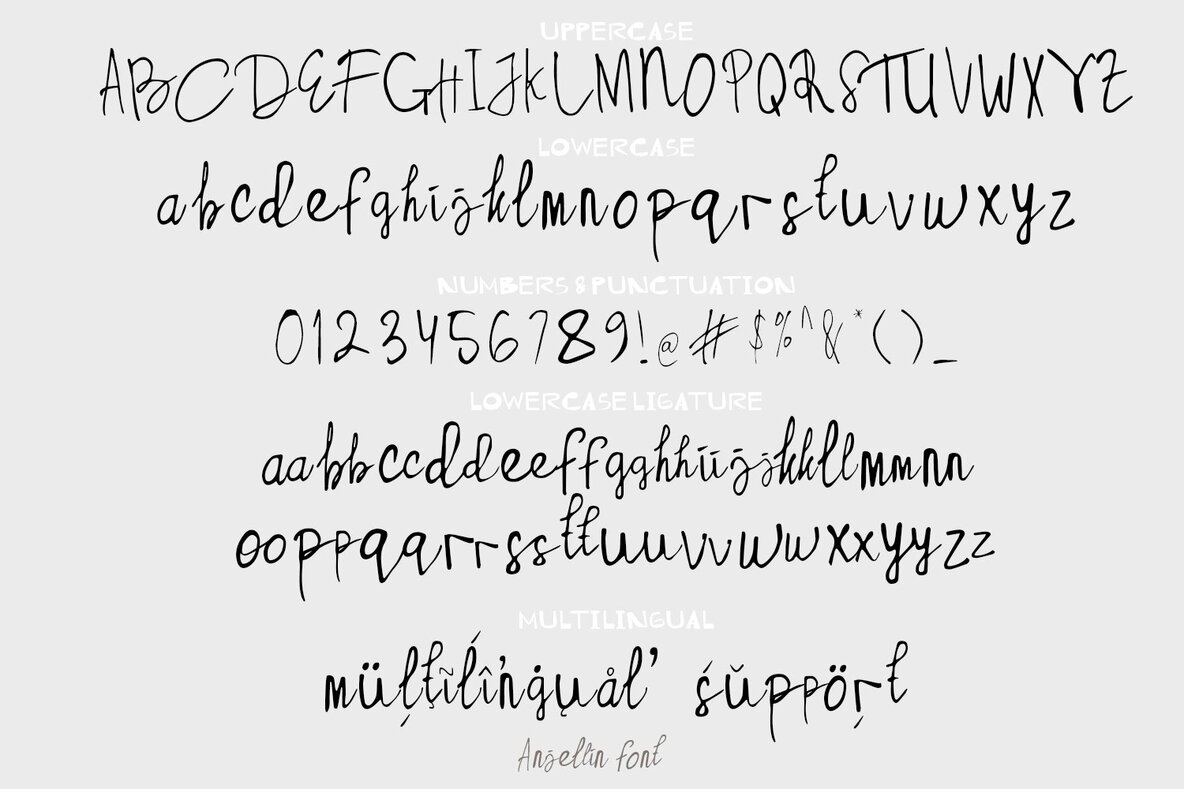 UPPERCASE
ABCDEFGHIJKLMNOPQRSTUVWXYZ
LOWERCASE
abcdefghijklmnopqrstuvwxyz
NUMBERS & PUNCTUATION
0123456789!@#$%^&*()_
LOWERCASE LIGATURE
aabbccddeeffgghhiijjkkllmmnn
ooppqqrrssttuuvvwwxxyyzz
MULTILINGUAL
müļţĩĺîŉġųål’ śŭppöŗt
Anjellin font